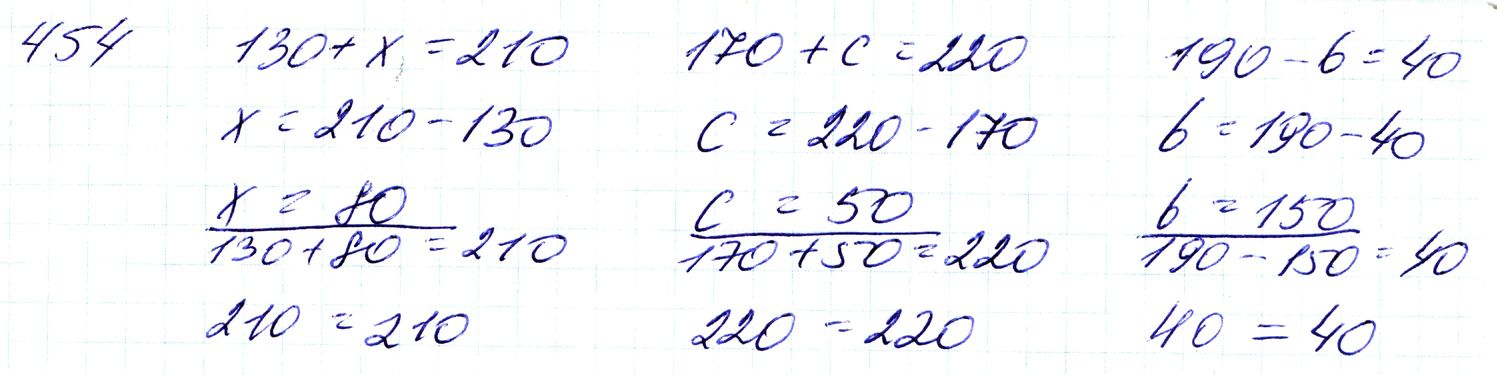 454 130+x=210 170+c=220 190-b=40
x=210-130 c=220-170 b=190-40
x=80 c=50 b=150
130+80=210 170+50=220 190-150=40
210=210 220=220 40=40